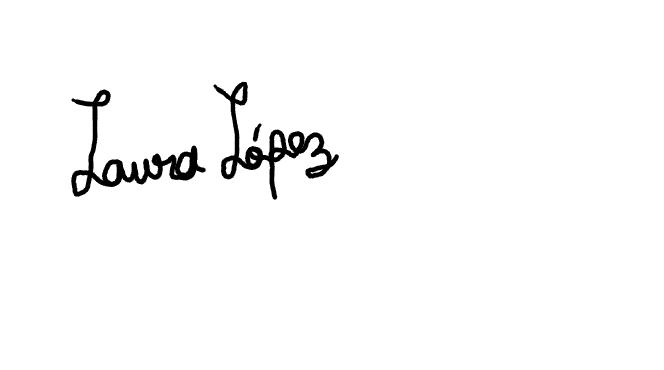 Laura López